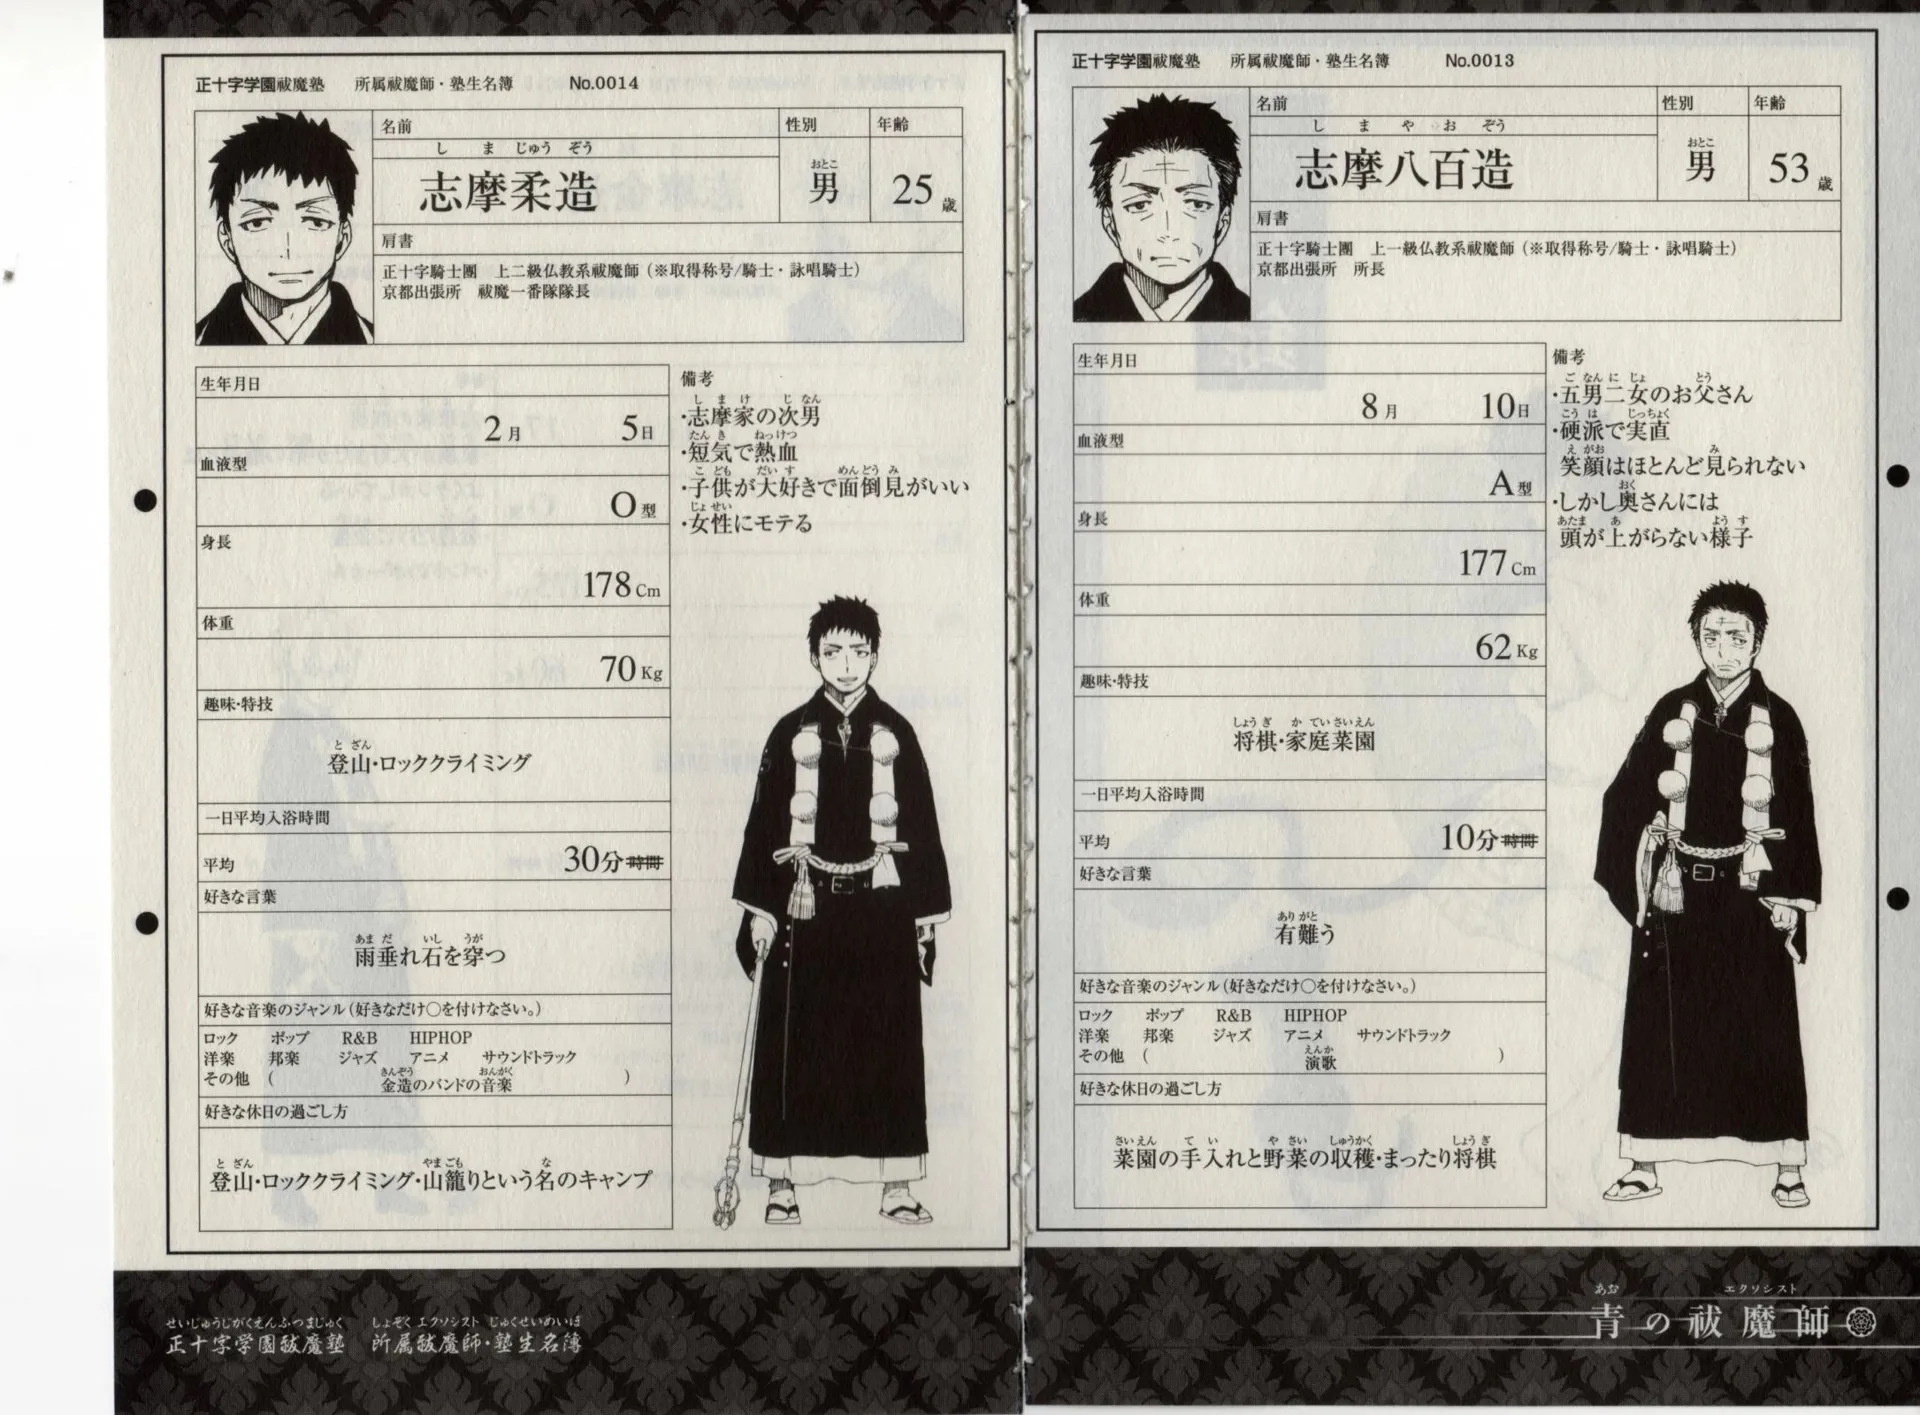 正十字学園祓魔塾 所属祓魔師・塾生名簿 No.0014
名前
し ま じゅう ぞう
志摩柔造
性別
おとこ
男
年齢
25歳
肩書
正十字騎士團 上二級仏教系祓魔師（※取得称号/騎士・詠唱騎士）
京都出張所 祓魔一番隊隊長
生年月日
2月 5日
血液型
O型
身長
178Cm
体重
70Kg
趣味・特技
と ざん
登山・ロッククライミング
一日平均入浴時間
平均 30分時間
好きな言葉
あま だ いし うが
雨垂れ石を穿つ
好きな音楽のジャンル（好きなだけ○を付けなさい。）
ロック ポップ R&B HIPHOP
洋楽 邦楽 ジャズ アニメ サウンドトラック
きんぞう おんがく
その他（ 金造のバンドの音楽 ）
好きな休日の過ごし方
と ざん やまごも な
登山・ロッククライミング・山籠りという名のキャンプ
備考
し ま け じ なん
・志摩家の次男
たん き ねっけつ
・短気で熱血
こ ども だい す めんどう み
・子供が大好きで面倒見がいい
じょ せい
・女性にモテる
せいじゅうじがくえんふつまじゅく しょぞく エクソシスト じゅくせいめいぼ
正十字学園祓魔塾 所属祓魔師・塾生名簿
正十字学園祓魔塾 所属祓魔師・塾生名簿 No.0013
名前
し ま や お ぞう
志摩八百造
性別
おとこ
男
年齢
53歳
肩書
正十字騎士團 上一級仏教系祓魔師（※取得称号/騎士・詠唱騎士）
京都出張所 所長
生年月日
8月 10日
血液型
A型
身長
177Cm
体重
62Kg
趣味・特技
しょう ぎ か てい さいえん
将棋・家庭菜園
一日平均入浴時間
平均 10分時間
好きな言葉
あり がと
有難う
好きな音楽のジャンル（好きなだけ○を付けなさい。）
ロック ポップ R&B HIPHOP
洋楽 邦楽 ジャズ アニメ サウンドトラック
えんか
その他（ 演歌 ）
好きな休日の過ごし方
さいえん て い や さい しゅうかく しょう ぎ
菜園の手入れと野菜の収穫・まったり将棋
備考
ご なん に じょ とう
・五男二女のお父さん
こう は じっちょく
・硬派で実直
え がお み
笑顔はほとんど見られない
おく
・しかし奥さんには
あたま あ よう す
頭が上がらない様子
あお エクソシスト
青の祓魔師